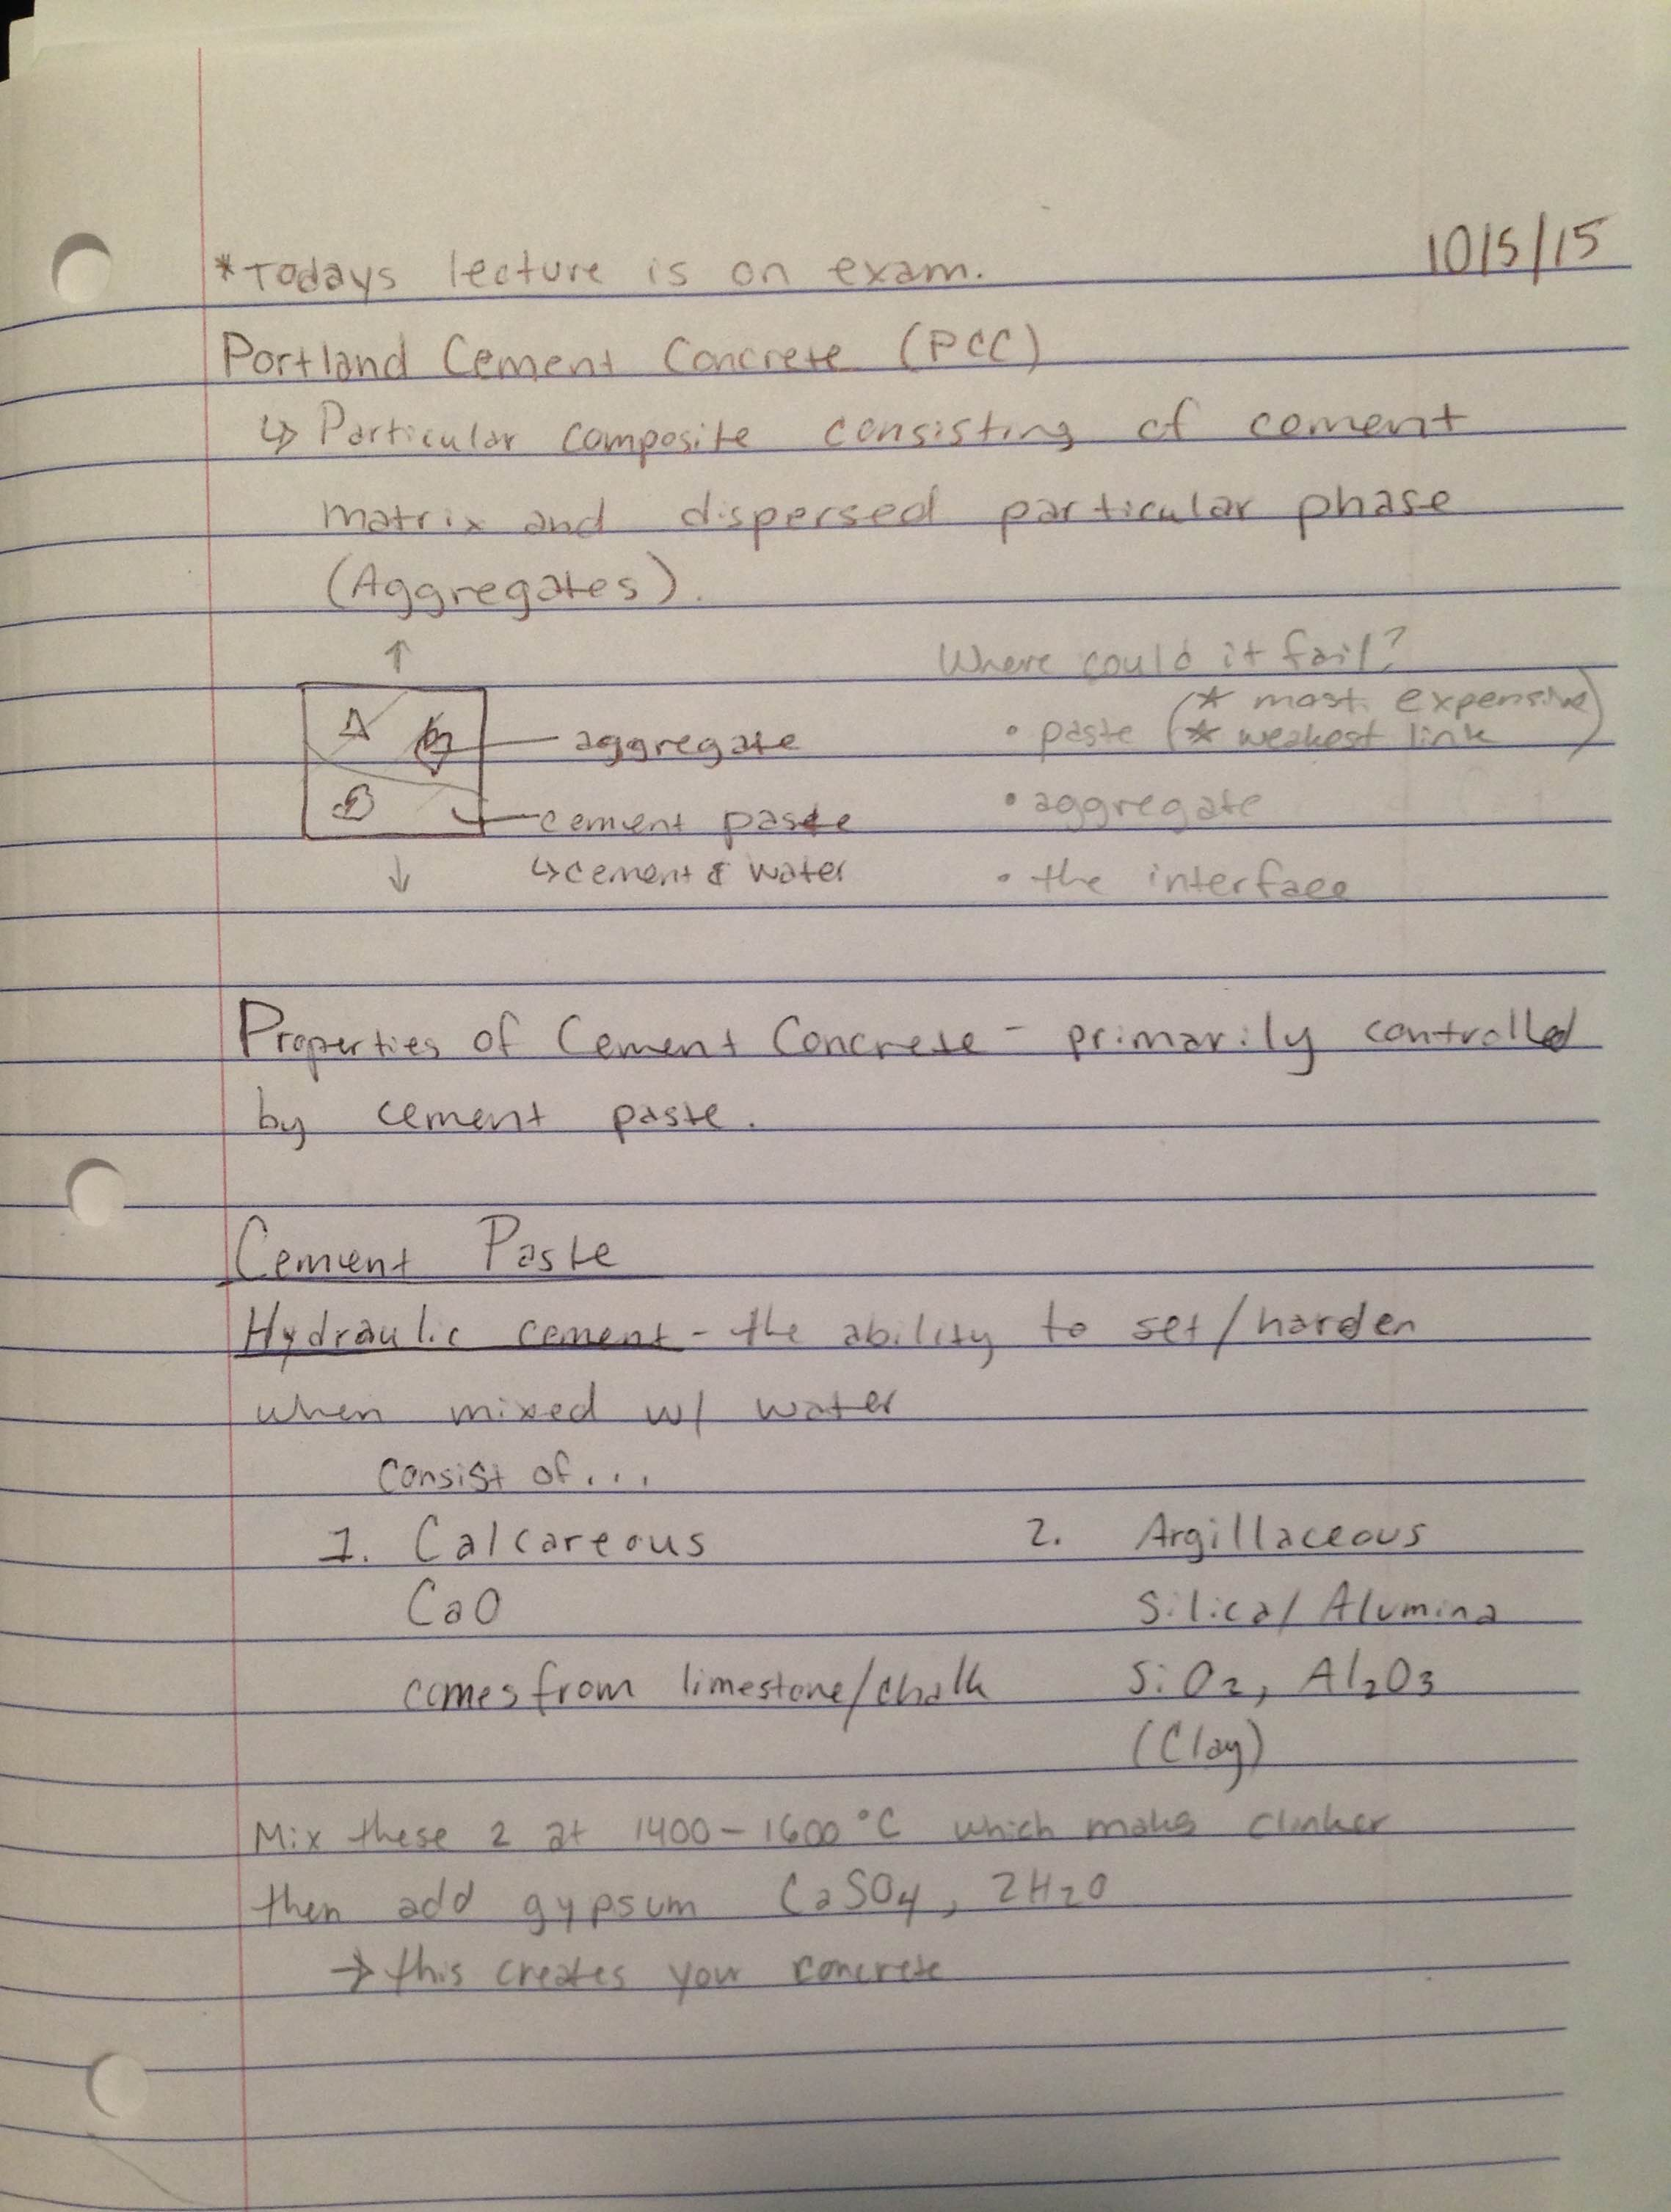 10/5/15
*Todays lecture is on exam.
Portland Cement Concrete (PCC)
↳ Particular composite consisting of cement
matrix and dispersed particular phase
(Aggregates).
Where could it fail?
aggregate
• paste (* most expensive
* weakest link)
cement paste
↳ cement & water
• aggregate
• the interface
Properties of Cement Concrete - primarily controlled
by cement paste.
Cement Paste
Hydraulic cement - the ability to set/harden
when mixed w/ water
consist of...
1. Calcareous
CaO
comes from limestone/chalk
2. Argillaceous
Silica/Alumina
SiO2, Al2O3
(Clay)
Mix these 2 at 1400-1600°C which makes clinker
then add gypsum CaSO4, 2H2O
→ this creates your concrete